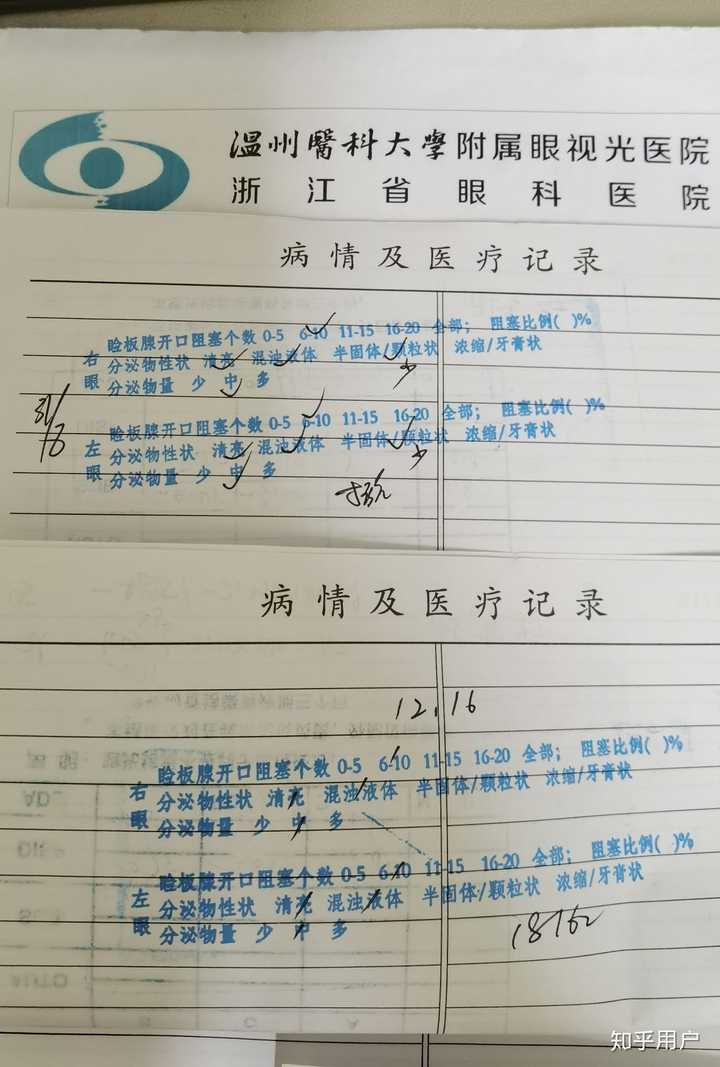 温州醫科大學附属眼视光医院
浙江省眼科医院
病情及医疗记录
右眼
睑板腺开口阻塞个数 0-5 6-10 11-15 16-20 全部； 阻塞比例( )%
分泌物性状 清亮 混浊液体 半固体/颗粒状 浓缩/牙膏状
少
分泌物量 少 中 多
左眼
睑板腺开口阻塞个数 0-5 6-10 11-15 16-20 全部； 阻塞比例( )%
分泌物性状 清亮 混浊液体 半固体/颗粒状 浓缩/牙膏状
少
分泌物量 少 中 多
病情及医疗记录
12.16
右眼
睑板腺开口阻塞个数 0-5 6-10 11-15 16-20 全部； 阻塞比例( )%
分泌物性状 清亮 混浊液体 半固体/颗粒状 浓缩/牙膏状
分泌物量 少 中 多
左眼
睑板腺开口阻塞个数 0-5 6-10 11-15 16-20 全部； 阻塞比例( )%
分泌物性状 清亮 混浊液体 半固体/颗粒状 浓缩/牙膏状
分泌物量 少 中 多
知乎用户